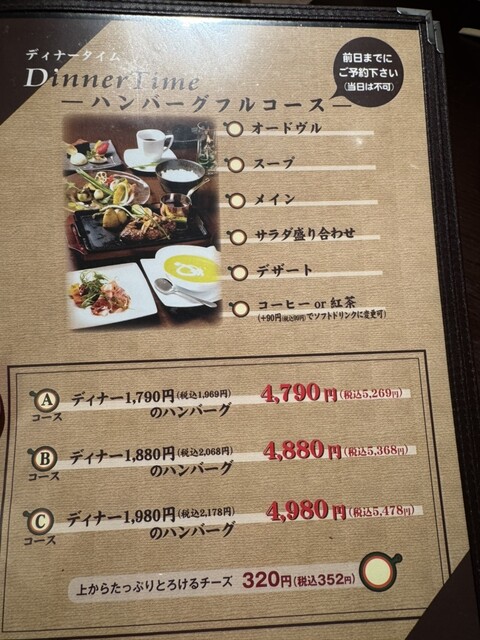 ディナータイム
DinnerTime
前日までに
ご予約下さい
(当日は不可)
ハンバーグフルコース
オードヴル
スープ
メイン
サラダ盛り合わせ
デザート
コーヒー or 紅茶
(+90円(税込99円)でソフトドリンクに変更可)
A
コース
ディナー1,790円(税込1,969円)
のハンバーグ
4,790円(税込5,269円)
B
コース
ディナー1,880円(税込2,068円)
のハンバーグ
4,880円(税込5,368円)
C
コース
ディナー1,980円(税込2,178円)
のハンバーグ
4,980円(税込5,478円)
上からたっぷりとろけるチーズ 320円(税込352円)